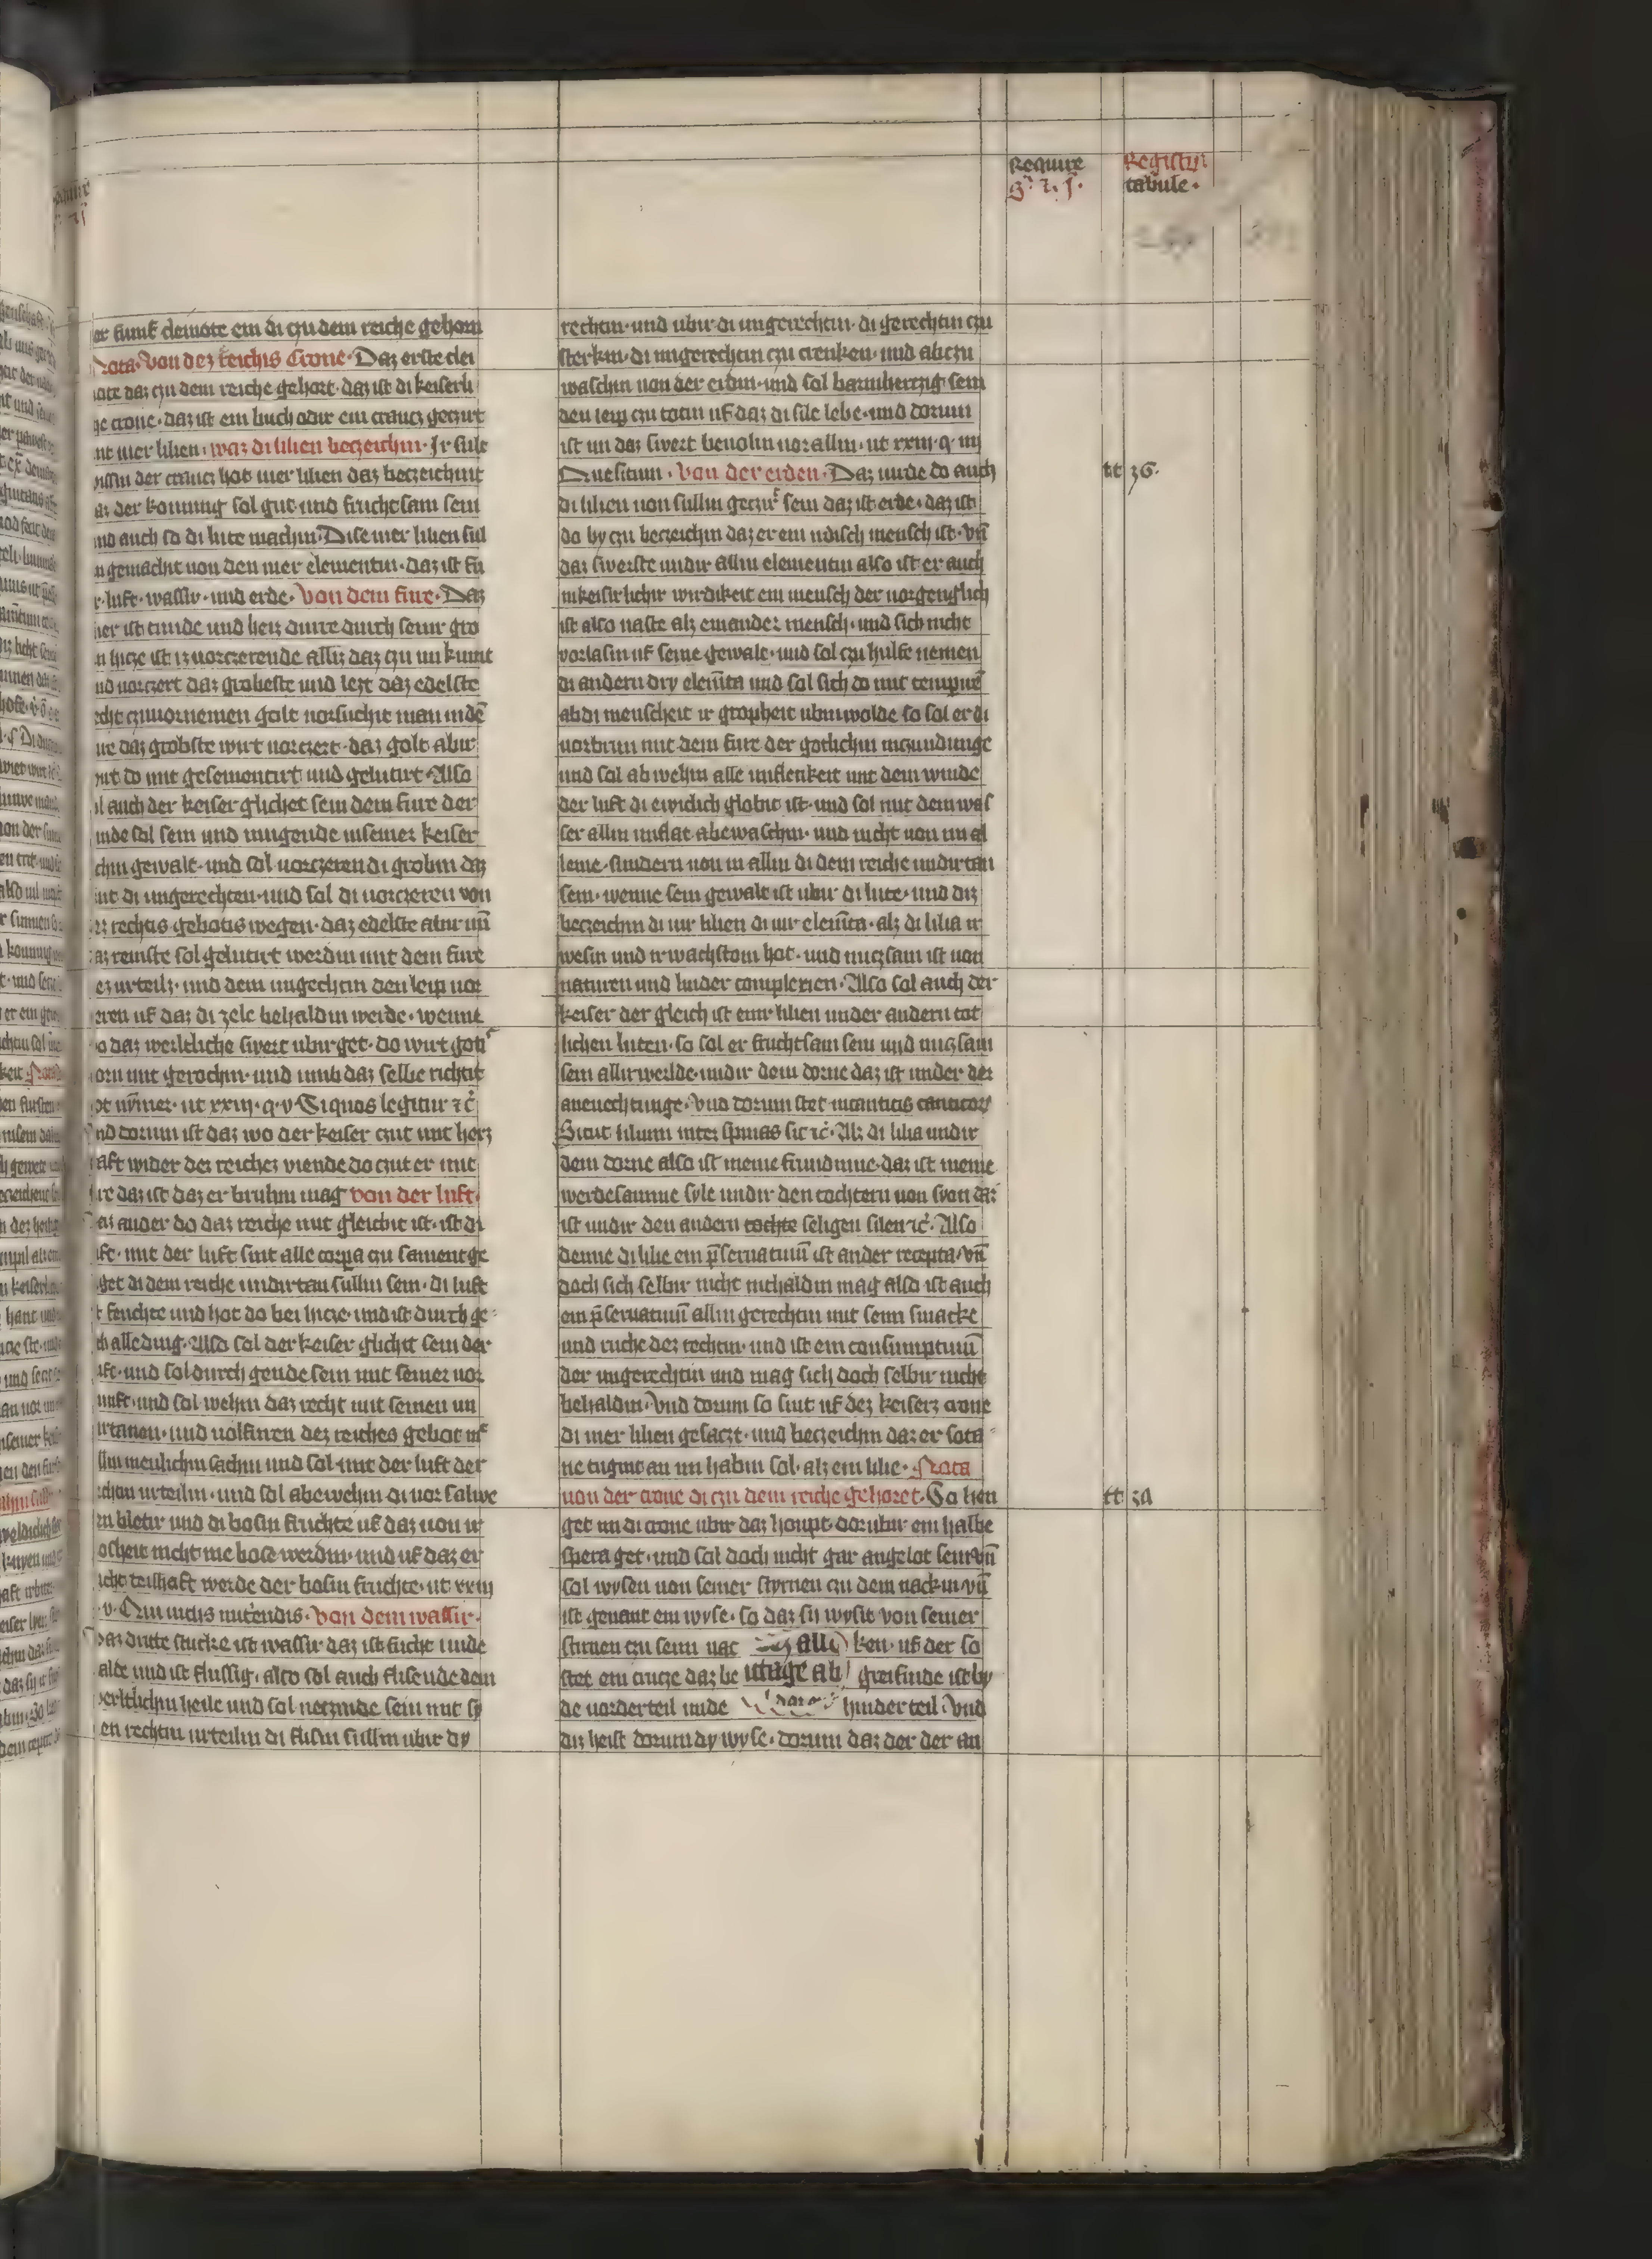 Require
Registrum
tabule.
er funf cleinote ein di czu dem reiche gehorn
Nota. Von dez reichis Crone. Daz erste clei
note daz czu dem reiche gehort. daz ist di keiserli
ge crone. daz ist ein huch odir ein crancz geczirt
mit vier lilien. waz di lilien beczeichin. Ir sule
wissin der crancz hot vier lilien daz beczeichint
az der konning sol gut und fruchtsam sein
und auch so di lute machin. Dise vier lilien sul
n gemacht von den vier elementin. daz ist fu
r. luft. wassir. und erde. Von dem fure. Daz
ver ist linde und heis durre durch seinir gro
n hicze ist iz vorczerende alliz daz czu im kumt
und vorczert daz grobeste und lezt daz edelste
recht czuvornemen golt vorsuchit man in dē
ure daz grobste wirt vorczert. daz golt abir
wirt do mit gesementirt und gelutirt. Also
sol auch der keiser glichet sein dem fure der
linde sol sein und mugende in seiner keiser
chin gewalt. und sol vorczeren di grobin daz
sint di ungerechten. und sol di vorczeren von
dez rechtis gebotis wegen. daz edelste abir un̄
daz reinste sol gelutirt werdin mit dem fure
dez urteils. und dem ungerechtin den leip vor
czeren uf daz di zele behaldin werde. wenne
wo daz werltliche swert ubirget. do wirt gotis
zorn mit gerochin. und umb daz selbe richtit
got nȳmer. ut xxiij. q. v. Si quos legitur ⁊c̄
Und dorum ist daz wo der keiser czut mit herz
aft wider dez reichez viende do czut er mit
fure daz ist daz er burnin mag von der luft.
Daz ander do daz reiche mit glichit ist. ist di
luft. mit der luft sint alle corpora czu samengē
get di dem reiche undirtan sullin sein. di luft
ist feuchte und hot do bei hicze. und ist durch ge
ch alle ding. Also sol der keiser glichit sein der
luft. und sol durch gende sein mit seiner vor
nunft. und sol wehin daz recht mit seinen un
dirtanen. und volfuren dez reiches gebot in
allin menslichin sachin und sol mit der luft der
rechten urteilin. und sol abewehin di vor salwe
ten bletir und di bosin fruchte uf daz von ir
bosheit nicht me bose werdin. und uf daz er
icht teilhaft werde der bosin fruchte. ut xxiij
q. v. Qui viciis nutrendis. Von dem wassir.
Daz dritte stucke ist wassir daz ist fucht unde
kalde und ist flussig. also sol auch flisende dem
werltlichin heile und sol neczinde sein mit sy
nen rechtin urteilin di flisin sullin ubir dy
rechtin. und ubir di ungerechtin. di gerechtin czu
sterkin. di ungerechtin czu crenken. und abczu
waschin von der erdin. und sol barmherczig sein
den leip czu totin uf daz di sile lebe. und dorum
ist im daz swert bevolin vor allin. ut xxiij. q. iiij
Quesitum. Von der erden. Daz wirde do auch
di lilien von sullin gecziret sein daz ist erde. daz ist
do by czu beczeichin daz er ein irdisch mensch ist. un̄
daz swerste undir allin elementin also ist er auch
in keisirlichir wirdikeit ein mensch der vorgenglich
ist also vaste alz ein ander mensch. und sich nicht
vorlasin uf seine gewalt. und sol czu hulfe nemen
di andern dry elem̄ta und sol sich do mit tempirn̄
ab di menscheit ir gropheit ubin wolde so sol er di
vorbrnin mit dem fure der gotlichin inczundunge
und sol ab wehin alle unflenkeit mit dem winde
der luft di ewiclich globit ist. und sol mit dem was
ser allin unflat abewaschin. und nicht von im al
leine. sundern von in allin di dem reiche undirtan
sein. wenne sein gewalt ist ubir di lute. und diz
beczeichin di vir lilien di vir elem̄ta. alz di lilia ir
wesin und ir wachstom hot. und nuczsam ist von
naturen und linder complexien. Also sol auch der
keiser der gleich ist einir lilien under andern tot
lichen luten. so sol er fruchtsam sein und nuczsam
sein allir werlde. undir dem dorne daz ist under der
anevechtunge. Und dorum stet in canticis canticor
Sicut lilium inter spinas sic ⁊c̄. Alz di lilia undir
dem dorne also ist meine frundinne. daz ist meine
werdesamme syle undir den tochtern von syon daz
ist undir den andern tochte seligen silen ⁊c̄. Also
denne di lilie ein p̄servativū ist ander recepta. un̄
doch sich selbir nicht inthaldin mag also ist auch
ein p̄servativū allin gerechtin mit seim smacke
und ruche dez rechtin. und ist ein consumptivū
der ungerechtin und mag sich doch selbir nicht
behaldin. Und dorum so sint uf dez keisers crone
di vier lilien gesaczt. und beczeichin daz er sota
ne tugint an im habin sol. alz ein lilie. Nota
von der crone di czu dem reiche gehoret. So hen
get im di crone ubir daz houpt. dorubir ein halbe
spera get. und sol doch nicht gar angelot sein. un̄
sol wysen von seiner styrnen czu dem nackin. un̄
ist genant ein wyse. so daz sy wysit von seiner
stirnen czu seim nac ken. uf der so
stet ein cruze daz be greifinde ist by
de vorderteil unde hinderteil. Und
diz heist dorum dy wyse. dorum daz der der an
tt 36.
tt 3a